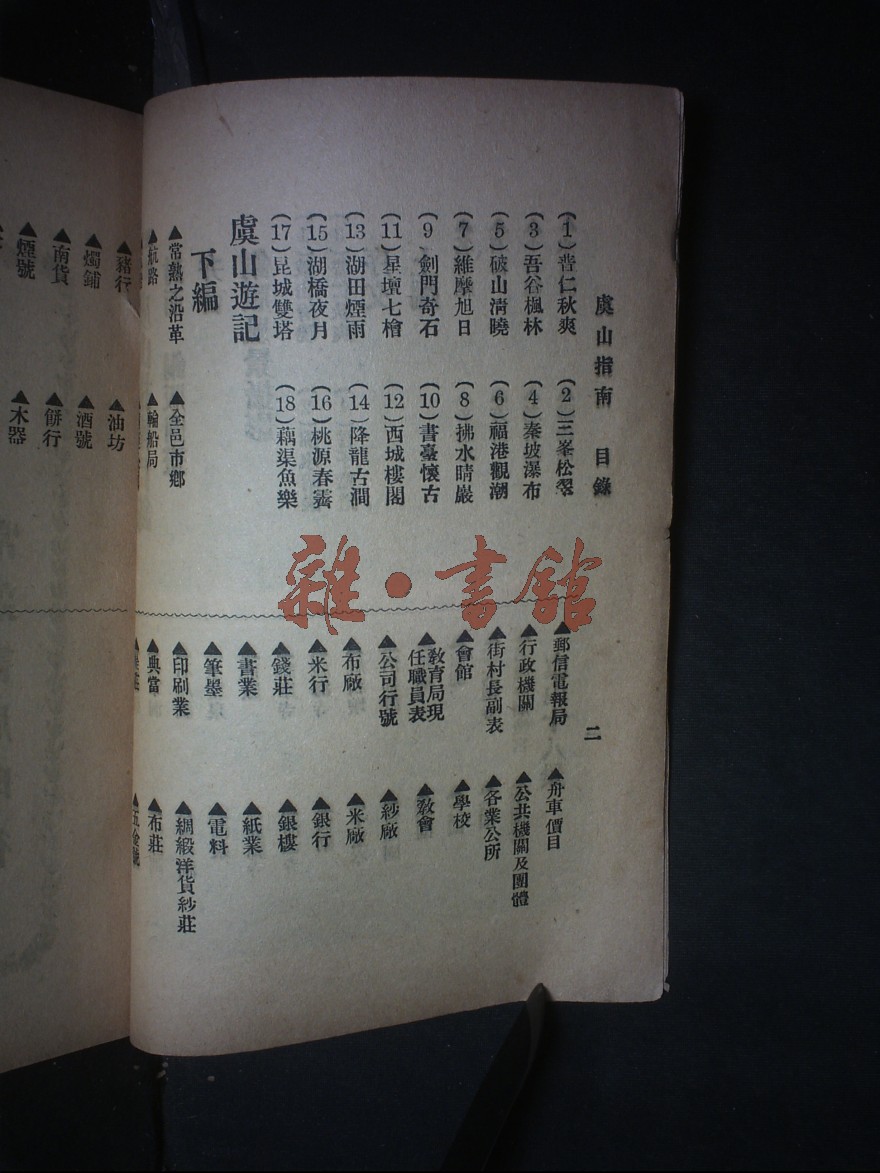 虞山指南　目錄
二
(1)普仁秋爽
(2)三峯松翠
(3)吾谷楓林
(4)秦坡瀑布
(5)破山淸曉
(6)福港觀潮
(7)維摩旭日
(8)拂水晴巖
(9)劍門奇石
(10)書臺懷古
(11)星壇七檜
(12)西城樓閣
(13)湖田煙雨
(14)降龍古澗
(15)湖橋夜月
(16)桃源春霽
(17)昆城雙塔
(18)藕渠魚樂
虞山遊記
下編
▲常熟之沿革
▲全邑市鄉
▲航路
▲輪船局
▲郵信電報局
▲舟車價目
▲行政機關
▲公共機關及團體
▲街村長副表
▲各業公所
▲會館
▲學校
▲敎育局現任職員表
▲敎會
▲公司行號
▲紗廠
▲布廠
▲米廠
▲米行
▲銀行
▲錢莊
▲銀樓
▲書業
▲紙業
▲筆墨
▲電料
▲印刷業
▲綢緞洋貨紗莊
▲典當
▲布莊
▲五金號
▲豬行
▲油坊
▲燭鋪
▲酒號
▲南貨
▲餅行
▲煙號
▲木器
雜・書館